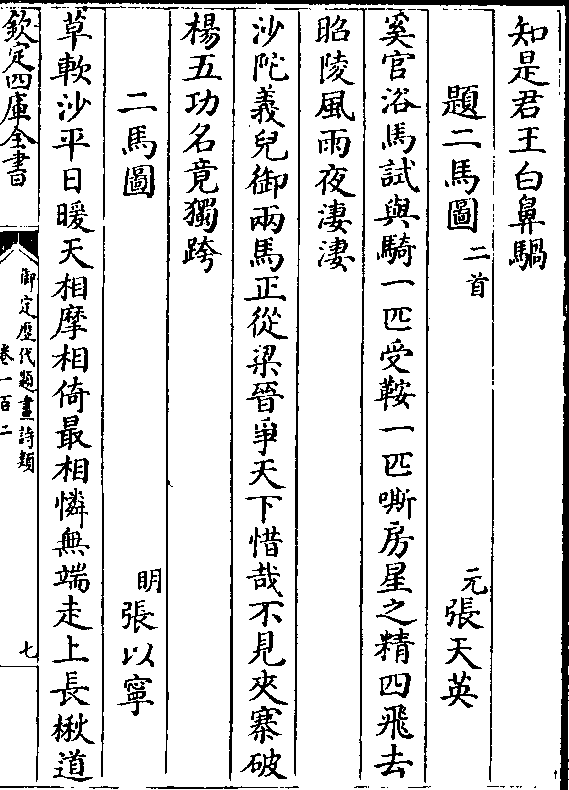 知是君王白鼻騧
題二馬圖 二首 元 張天英
奚官浴馬試與騎一匹受鞍一匹嘶房星之精四飛去
昭陵風雨夜淒淒
沙陀義兒御兩馬正從梁晉爭天下惜哉不見夾寨破
楊五功名竟獨跨
二馬圖 明 張以寧
草軟沙平日暖天相摩相倚最相憐無端走上長楸道
欽定四庫全書
御定歷代題畫詩類
卷一百二
七